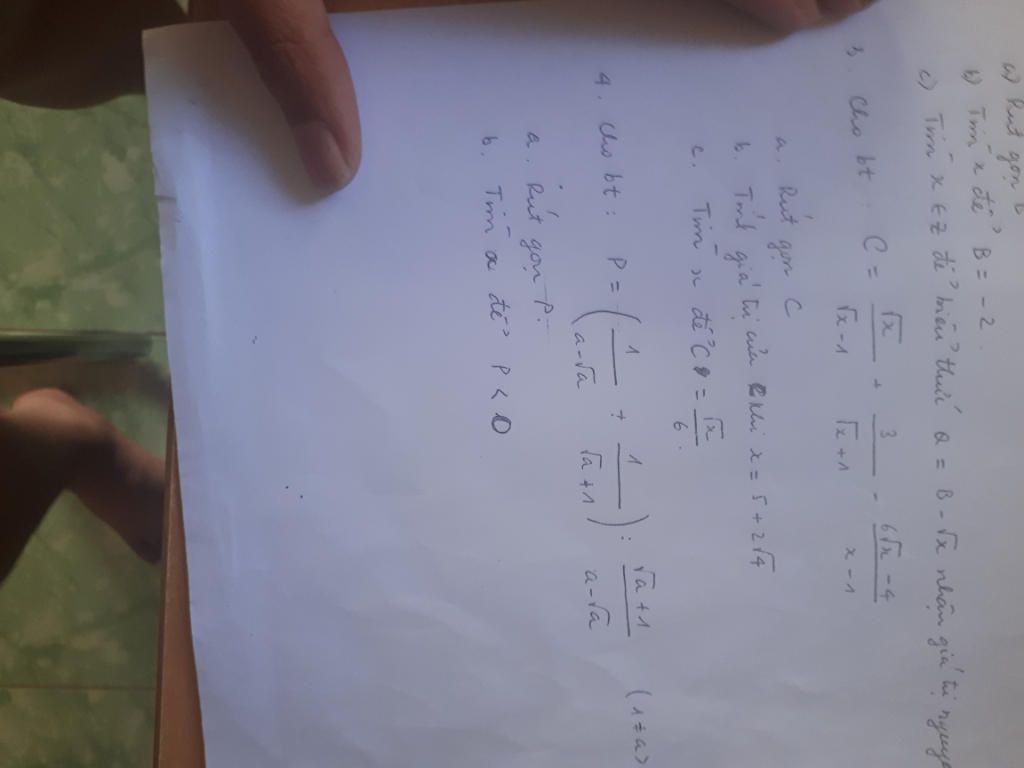 a) Rút gọn B
b) Tìm x để B = -2.
c) Tìm x ∈ Z để biểu thức Q = B - √x nhận giá trị nguyê
3. Cho bt: C = √x/(√x-1) + 3/(√x+1) - (6√x-4)/(x-1)
a. Rút gọn C
b. Tính giá trị của C khi x = 5 + 2√4
c. Tìm x để C = √x/6.
4. Cho bt: P = (1/(a-√a) + 1/(√a+1)) : (√a+1)/(a-√a) (1≠a>
a. Rút gọn P.
b. Tìm a để P < 0